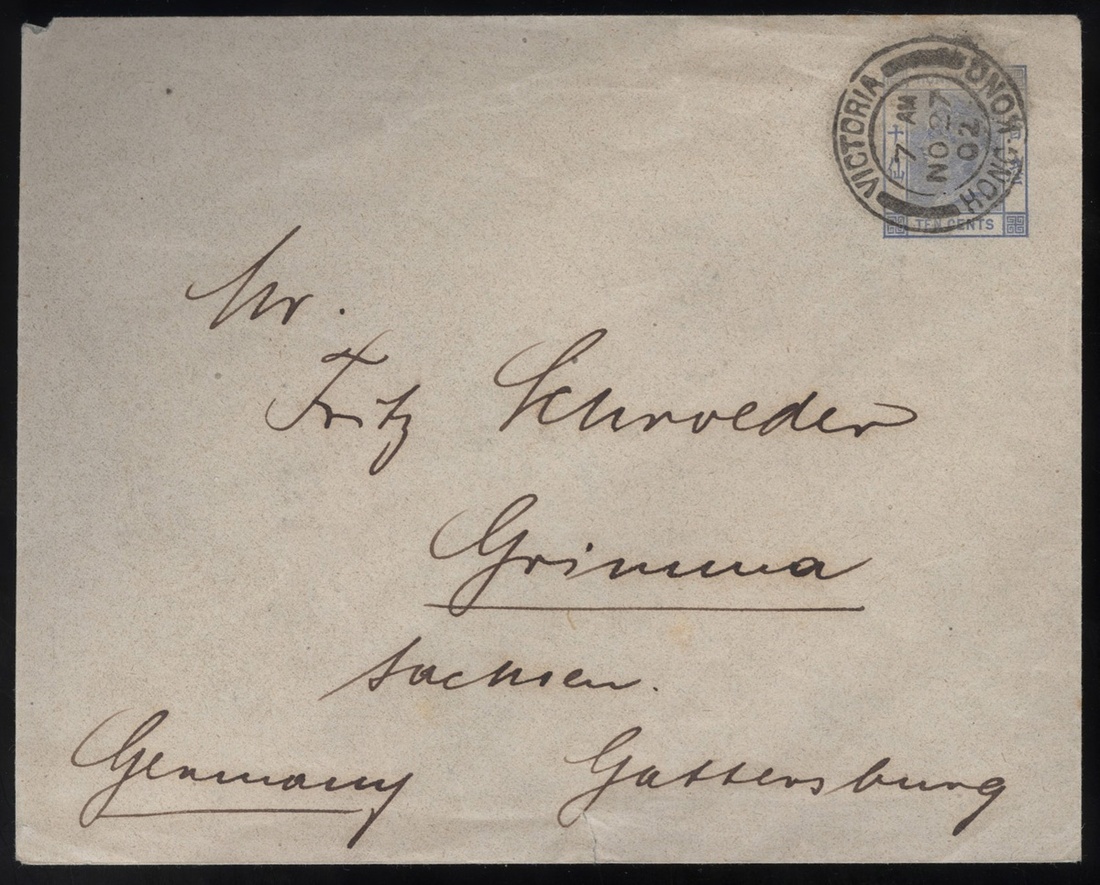 VICTORIA
HONG.KONG
7 AM
NO 27
02
TEN CENTS
Mr.
Fritz Schroeder
Grimma
Sachsen.
Germany Gattersburg